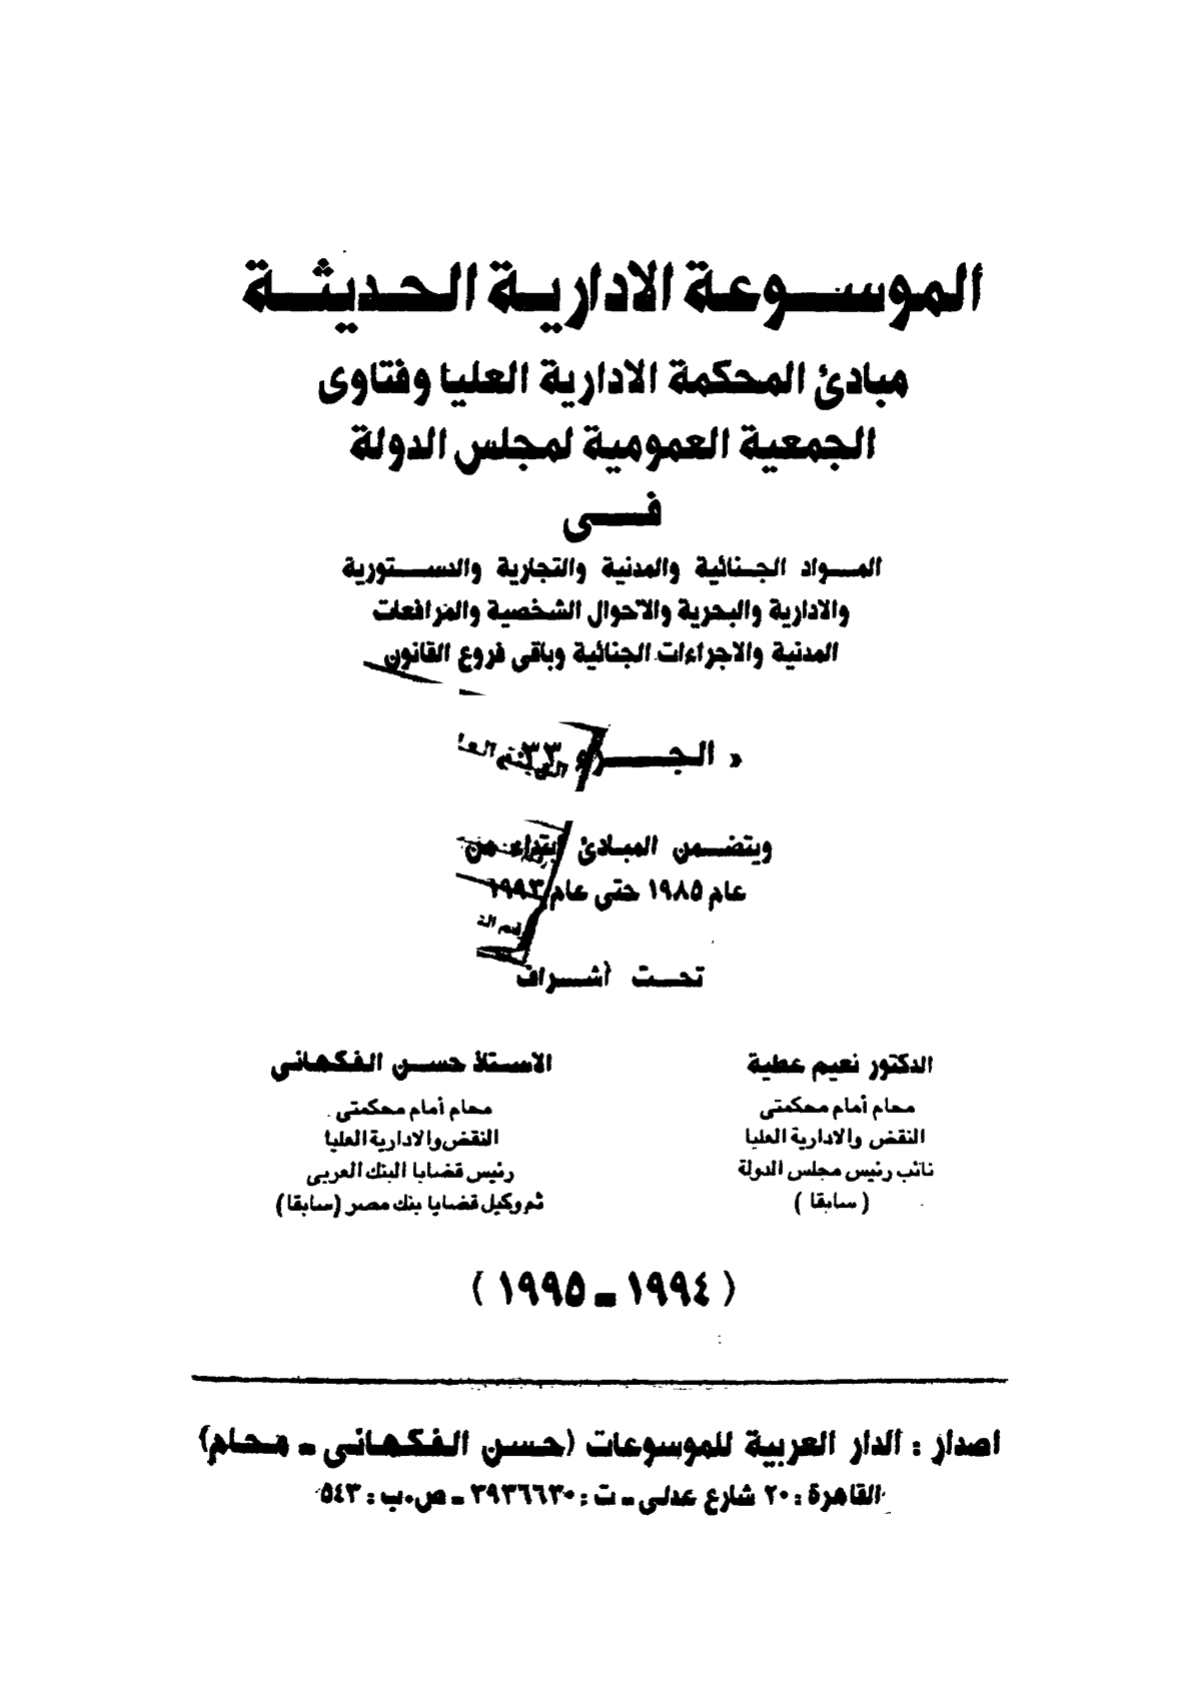 الموسوعة الادارية الحديثة
مبادئ المحكمة الادارية العليا وفتاوى
الجمعية العمومية لمجلس الدولة
فى
المواد الجنائية والمدنية والتجارية والدستورية
والادارية والبحرية والاحوال الشخصية والمرافعات
المدنية والاجراءات الجنائية وباقى فروع القانون
« الجزء ٣٣
ويتضمن المبادئ ابتداء من
عام ١٩٨٥ حتى عام ١٩٩٣
تحت أشراف
الدكتور نعيم عطية
محام أمام محكمتى
النقض والادارية العليا
نائب رئيس مجلس الدولة
( سابقا )
الاستاذ حسن الفكهانى
محام أمام محكمتى
النقض والادارية العليا
رئيس قضايا البنك العربى
ثم وكيل قضايا بنك مصر (سابقا)
( ١٩٩٤ ـ ١٩٩٥ )
اصدار : الدار العربية للموسوعات (حسن الفكهانى ـ محام)
القاهرة : ٢٠ شارع عدلى ـ ت : ٣٩٣٦٦٣٠ ـ ص.ب : ٥٤٣